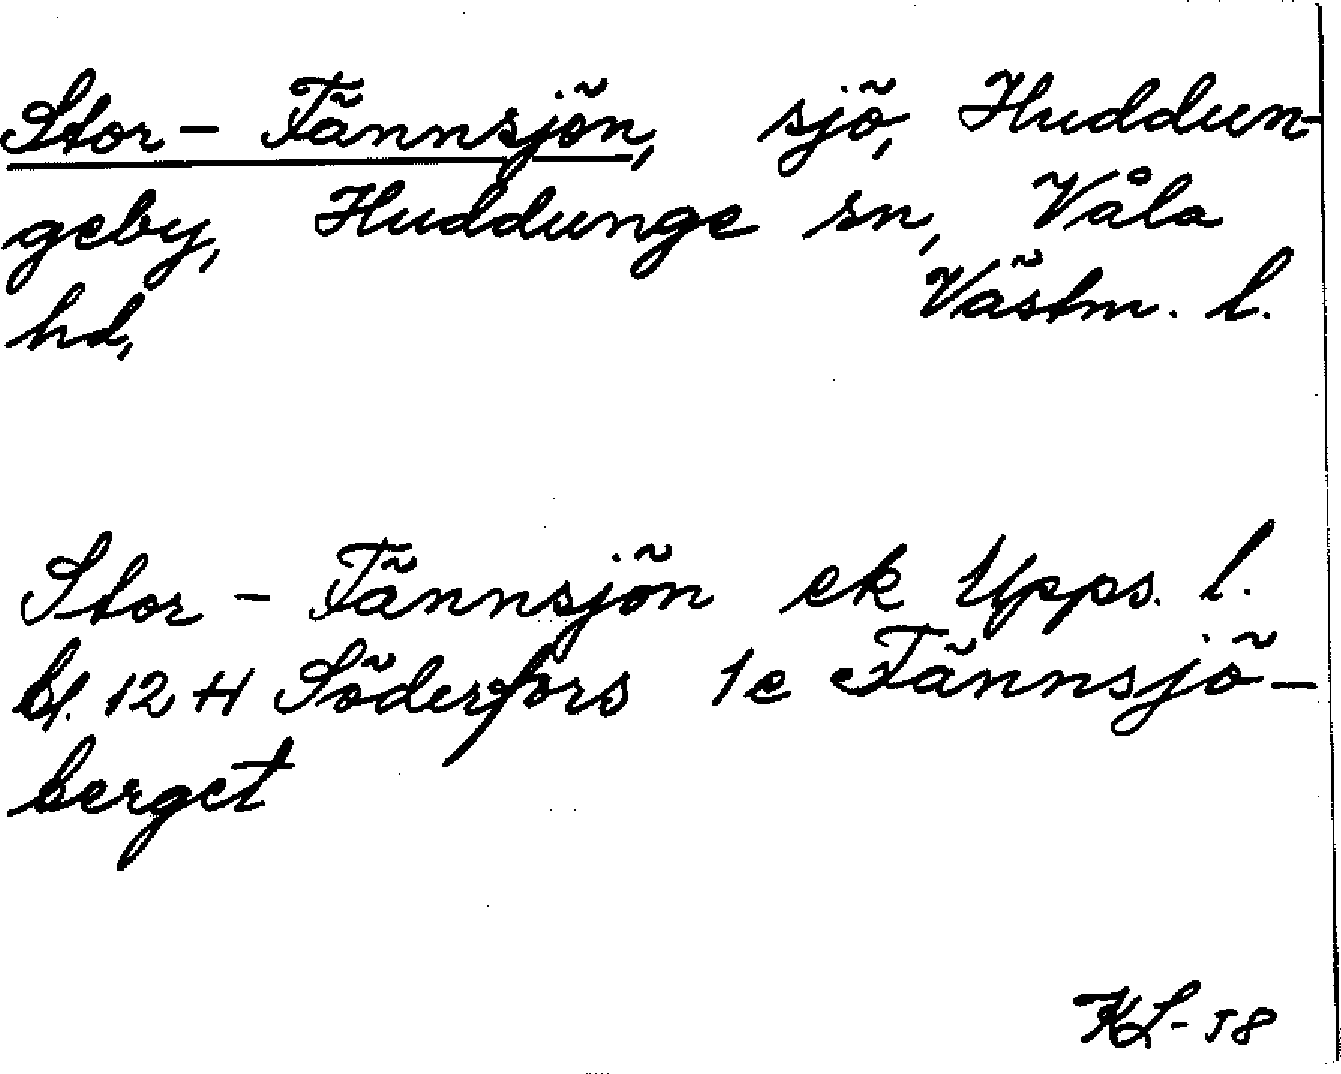 Stor - Tännsjön, sjö, Huddun-
geby, Huddunge sn, Våla
hd, Västm. l.
Stor - Tännsjön ek Upps. l.
bl. 12 H Söderfors 1e Tännsjö-
berget
KL-58